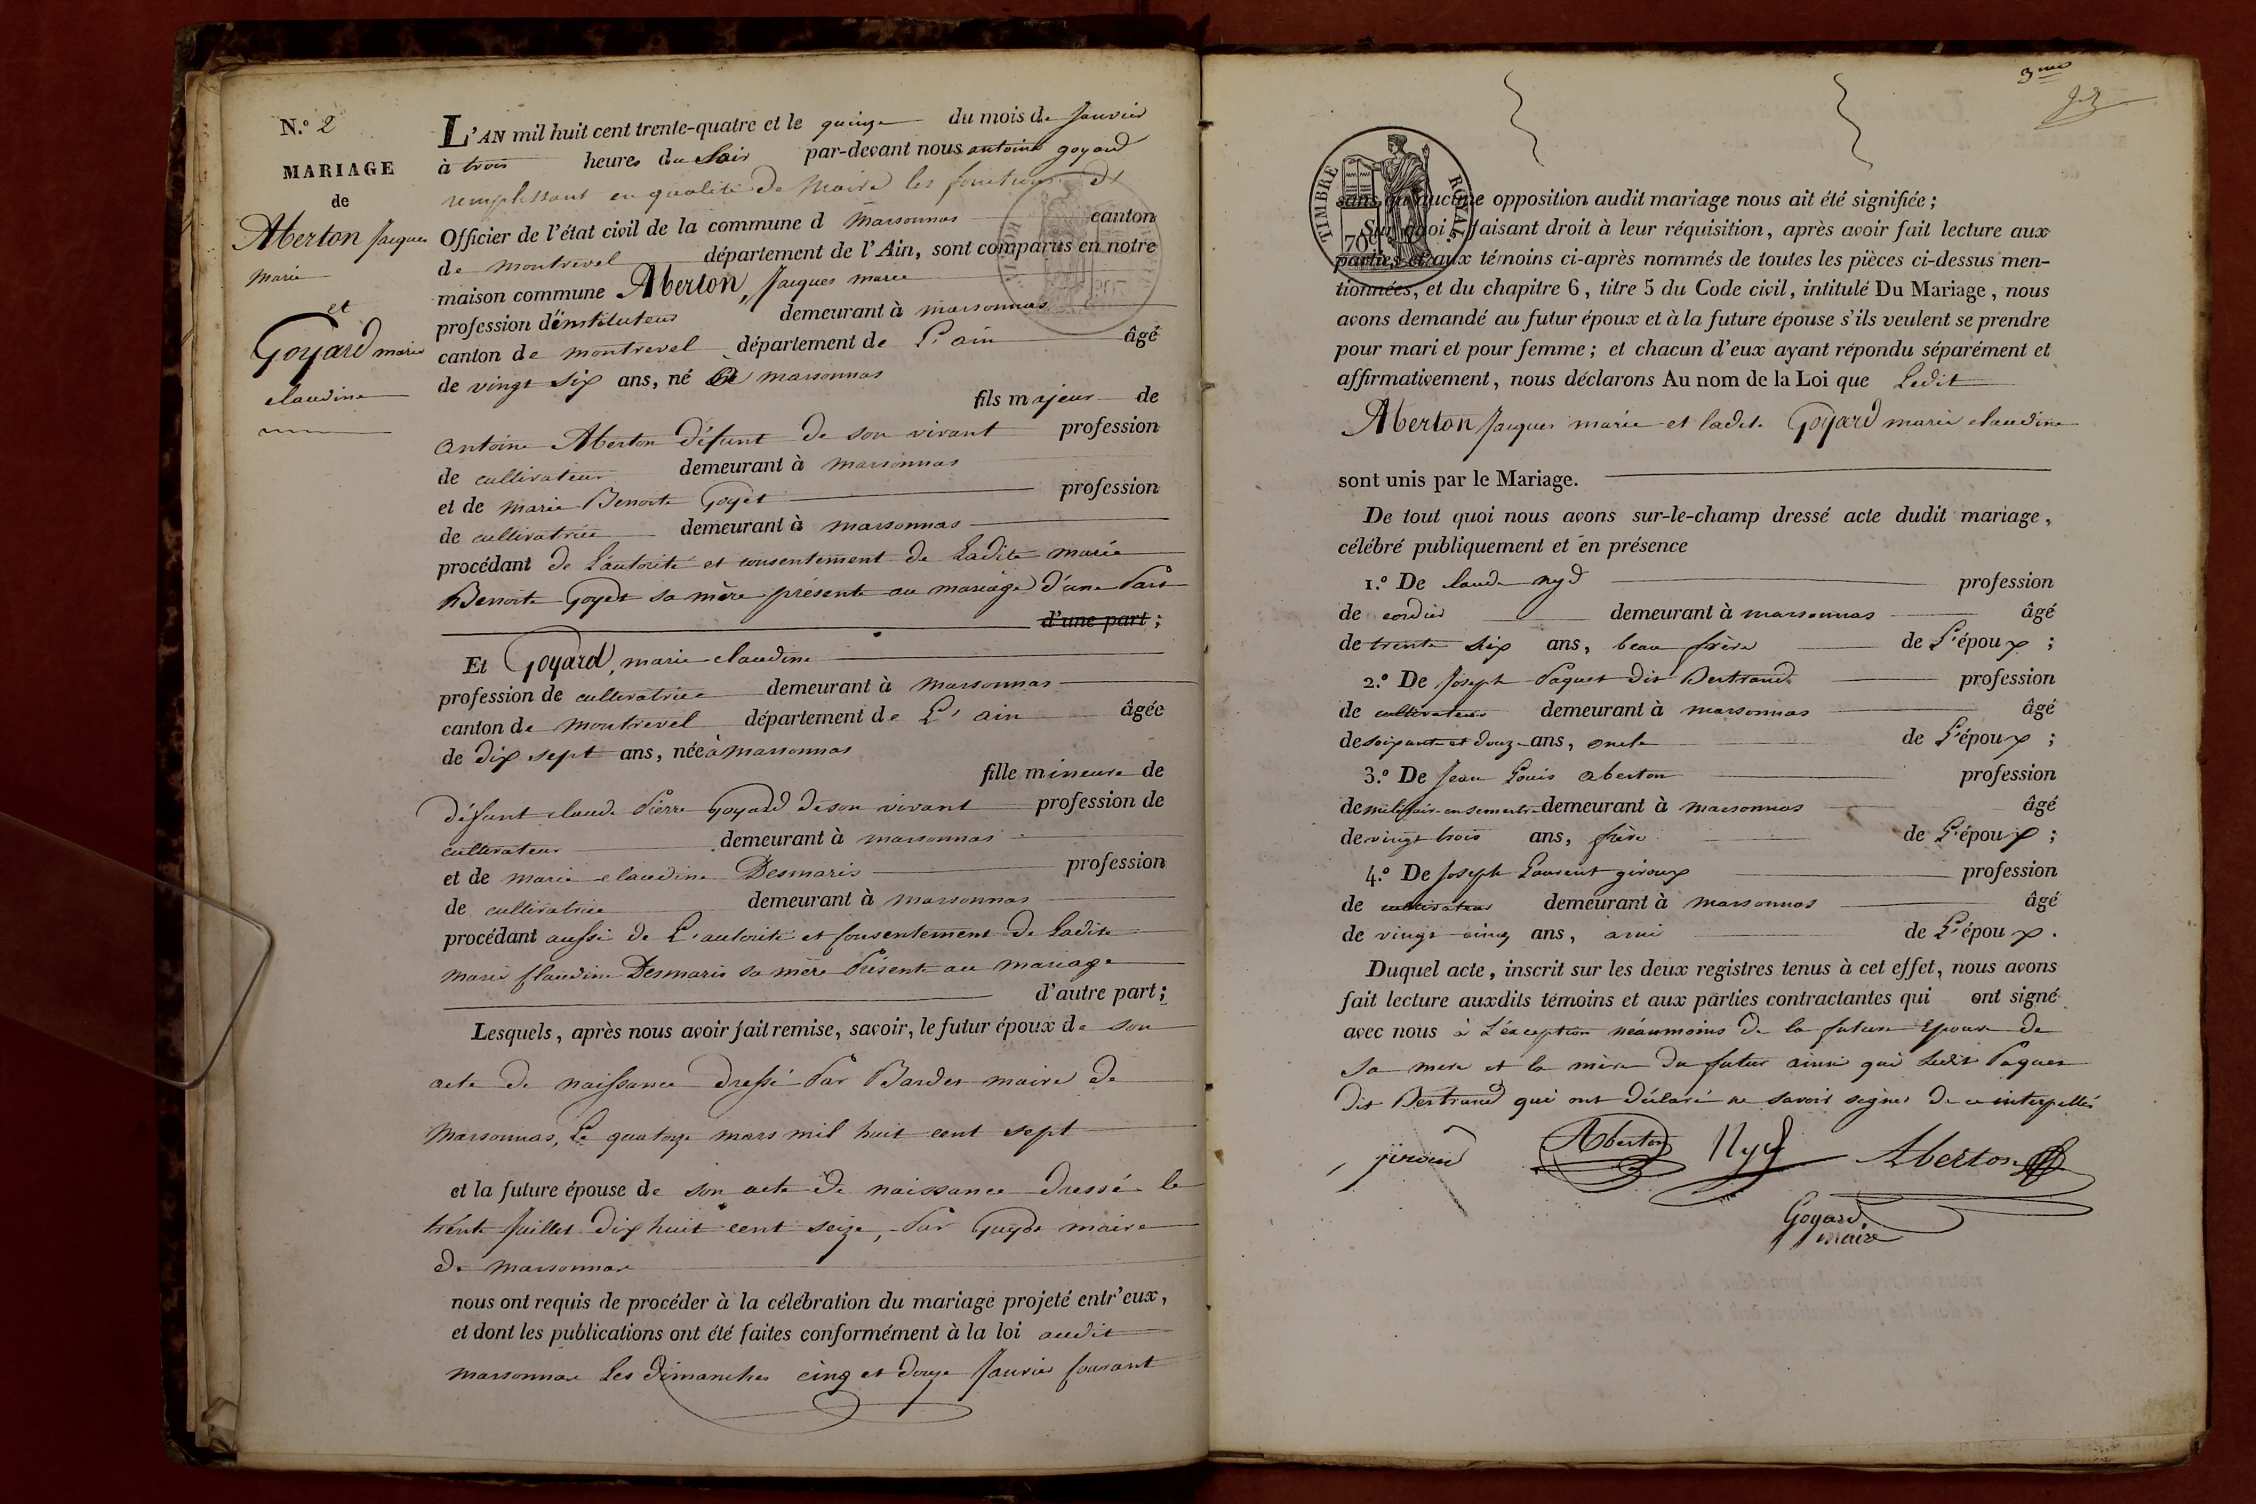 N.º 2
MARIAGE
de
Aberton Jacques
marie
et
Goyard marie
claudine
L'AN mil huit cent trente-quatre et le quinze du mois de Janvier
à trois heures du Soir par-devant nous antoine goyard
remplissant en qualité de Maire les fonctions d'
Officier de l'état civil de la commune d Marsonnas canton
de montrevel département de l'Ain, sont comparus en notre
maison commune Aberton, Jacques marie
profession d'instituteur demeurant à marsonnas
canton de montrevel département de L'ain âgé
de vingt six ans, né à marsonnas
fils majeur de
antoine Aberton défunt de son vivant profession
de cultivateur demeurant à marsonnas
et de marie Benoite Goyet profession
de cultivatrice demeurant à marsonnas
procédant de L'autorité et consentement de Ladite marie
Benoite Goyet sa mère présente au mariage d'une Part
d'une part ;
Et Goyard, marie claudine
profession de cultivatrice demeurant à marsonnas
canton de montrevel département de L'ain âgée
de dix sept ans, née à marsonnas
fille mineure de
défunt claude Pierre Goyard de son vivant profession de
cultivateur demeurant à marsonnas
et de marie claudine Desmaris profession
de cultivatrice demeurant à marsonnas
procédant aussi de L'autorité et Consentement de Ladite
marie Claudine Desmaris sa mère Présente au mariage
d'autre part ;
Lesquels, après nous avoir fait remise, savoir, le futur époux de son
acte de naissance dressé Par Bardet maire de
Marsonnas, Le quatorze mars mil huit cent sept
et la future épouse de son acte de naissance dressé le
trente Juillet dix huit cent seize, Par Guyot maire
de marsonnas
nous ont requis de procéder à la célébration du mariage projeté entr'eux,
et dont les publications ont été faites conformément à la loi audit
marsonnas Les dimanches cinq et douze Janvier Courant
3me
TIMBRE ROYAL
70c
sans qu'aucune opposition audit mariage nous ait été signifiée ;
Sur quoi, faisant droit à leur réquisition, après avoir fait lecture aux
parties et aux témoins ci-après nommés de toutes les pièces ci-dessus men-
tionnées, et du chapitre 6, titre 5 du Code civil, intitulé Du Mariage, nous
avons demandé au futur époux et à la future épouse s'ils veulent se prendre
pour mari et pour femme ; et chacun d'eux ayant répondu séparément et
affirmativement, nous déclarons Au nom de la Loi que Ledit
Aberton Jacques marie et ladite Goyard marie claudine
sont unis par le Mariage.
De tout quoi nous avons sur-le-champ dressé acte dudit mariage,
célébré publiquement et en présence
1.º De claude nyd profession
de cordier demeurant à marsonnas âgé
de trente six ans, beau frère de L'époux ;
2.º De Joseph Paquet dit Bertrand profession
de cultivateur demeurant à marsonnas âgé
de soixante et douze ans, oncle de L'époux ;
3.º De Jean Louis aberton profession
de militaire en semestre demeurant à marsonnas âgé
de vingt trois ans, frère de L'époux ;
4.º De Joseph Laurent giroux profession
de cultivateur demeurant à marsonnas âgé
de vingt cinq ans, ami de L'époux .
Duquel acte, inscrit sur les deux registres tenus à cet effet, nous avons
fait lecture auxdits témoins et aux parties contractantes qui ont signé
avec nous à L'exception néanmoins de la future épouse de
sa mere et la mère du futur ainsi que Ledit Paquet
dit Bertrand qui ont déclaré ne savoir signer de ce interpellés
Aberton Nyd Aberton
Goyard,
maire